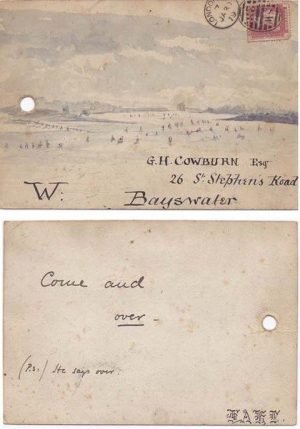 G.H. COWBURN Esq
26 St Stephen's Road
W. Bayswater
Come and
over -
(P.s.) He says over.